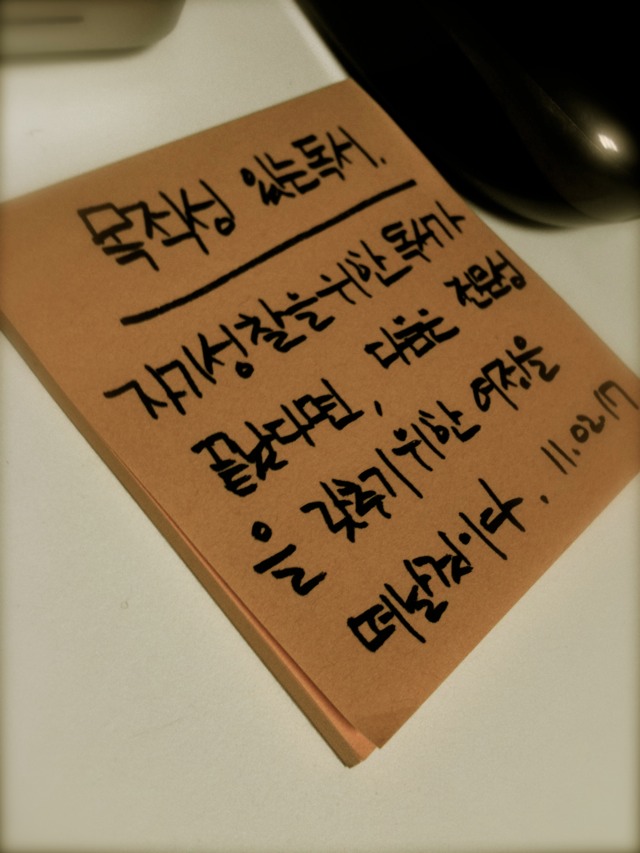 목적성 있는 독서.
자기성찰을 위한 독서가
끝났다면, 다음 전문성
을 갖추기 위한 여정을
떠날것이다. 11.02.17